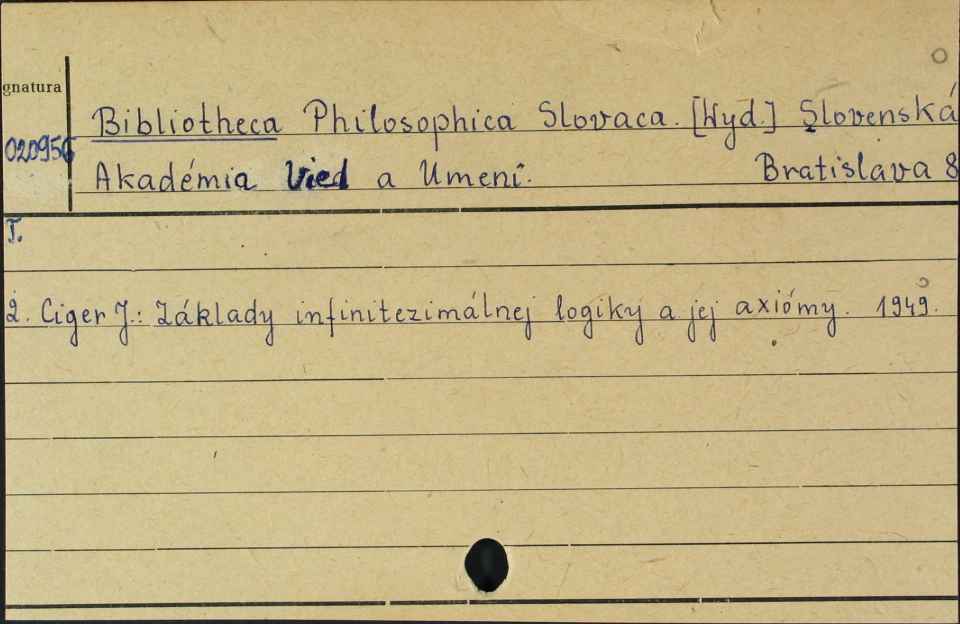 gnatura
Bibliotheca Philosophica Slovaca. [Wyd.] Slovenská
020956
Akadémia Vied a Umení. Bratislava 8
I.
2. Ciger J.: Základy infinitezimálnej logiky a jej axiómy. 1949.